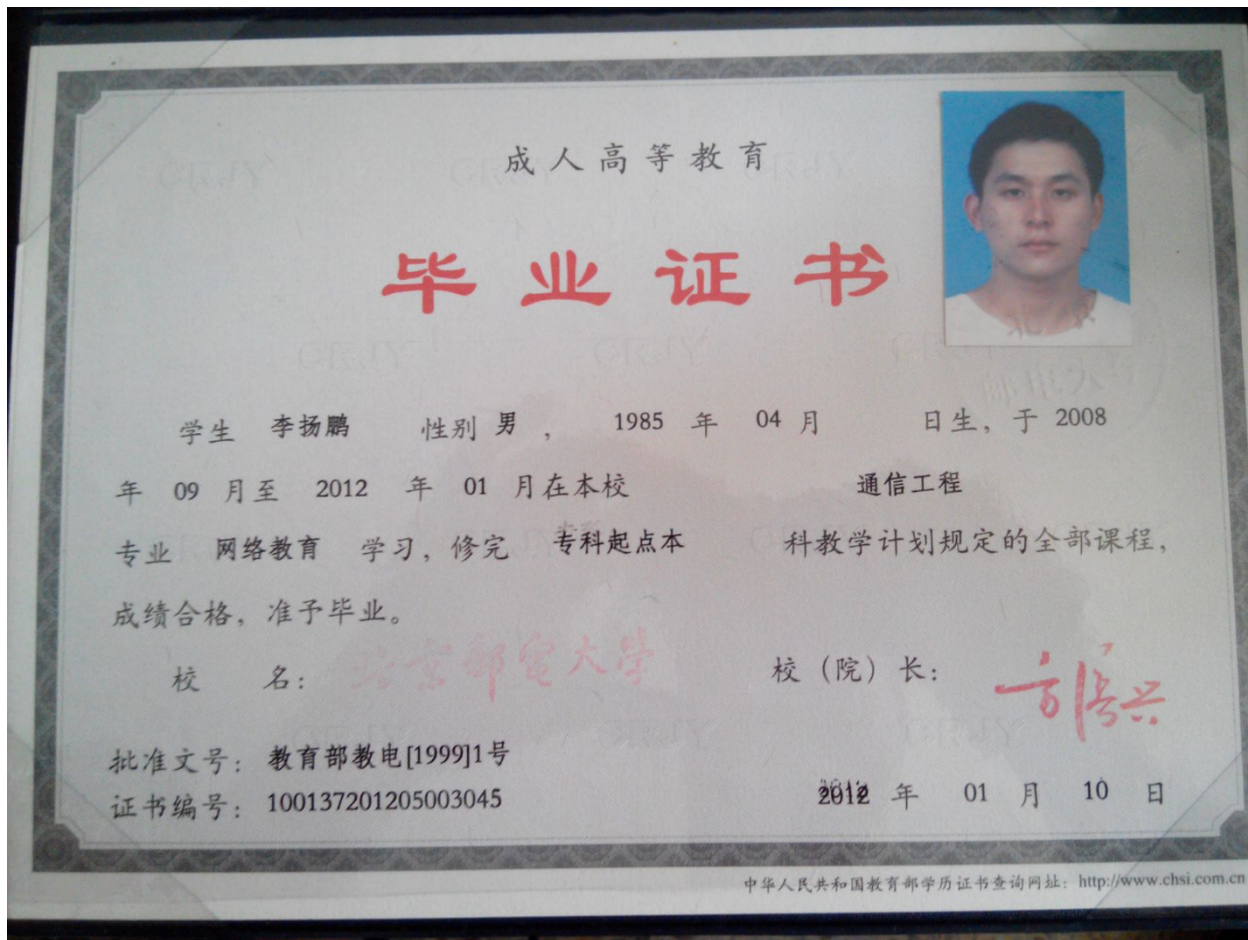 成人高等教育
毕业证书
学生 李扬鹏 性别 男 ， 1985 年 04 月 日生，于 2008
年 09 月至 2012 年 01 月在本校 通信工程
专业 网络教育 学习，修完 专科起点本 科教学计划规定的全部课程，
成绩合格，准予毕业。
校 名： 北京邮电大学 校（院）长： 方滨兴
批准文号： 教育部教电[1999]1号
证书编号： 100137201205003045 2012 年 01 月 10 日
中华人民共和国教育部学历证书查询网址：http://www.chsi.com.cn